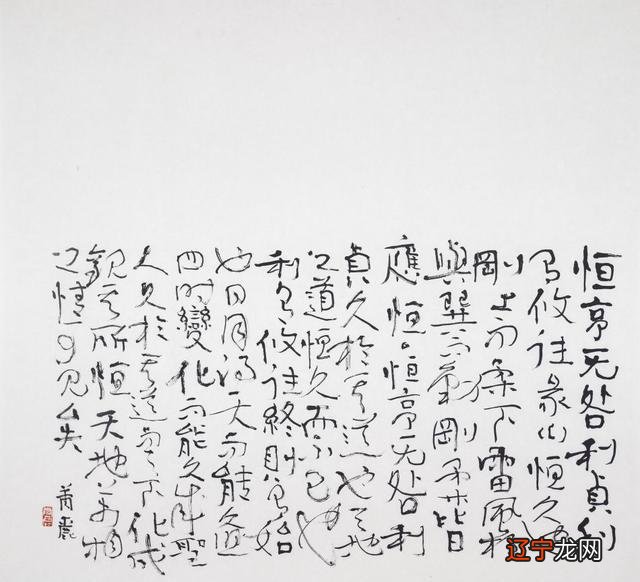 恒亨无咎利貞利
有攸往彖曰恒久也
剛上而柔下雷風相
與巽而動剛柔皆
應恒恒亨无咎利
貞久於其道也天地
之道恒久而不已也
利有攸往終則有始
也日月得天而能久
四时變化而能久成聖
人久於其道而天下化成
觀其所恒天地万物
之情可見矣
辽宁龙网